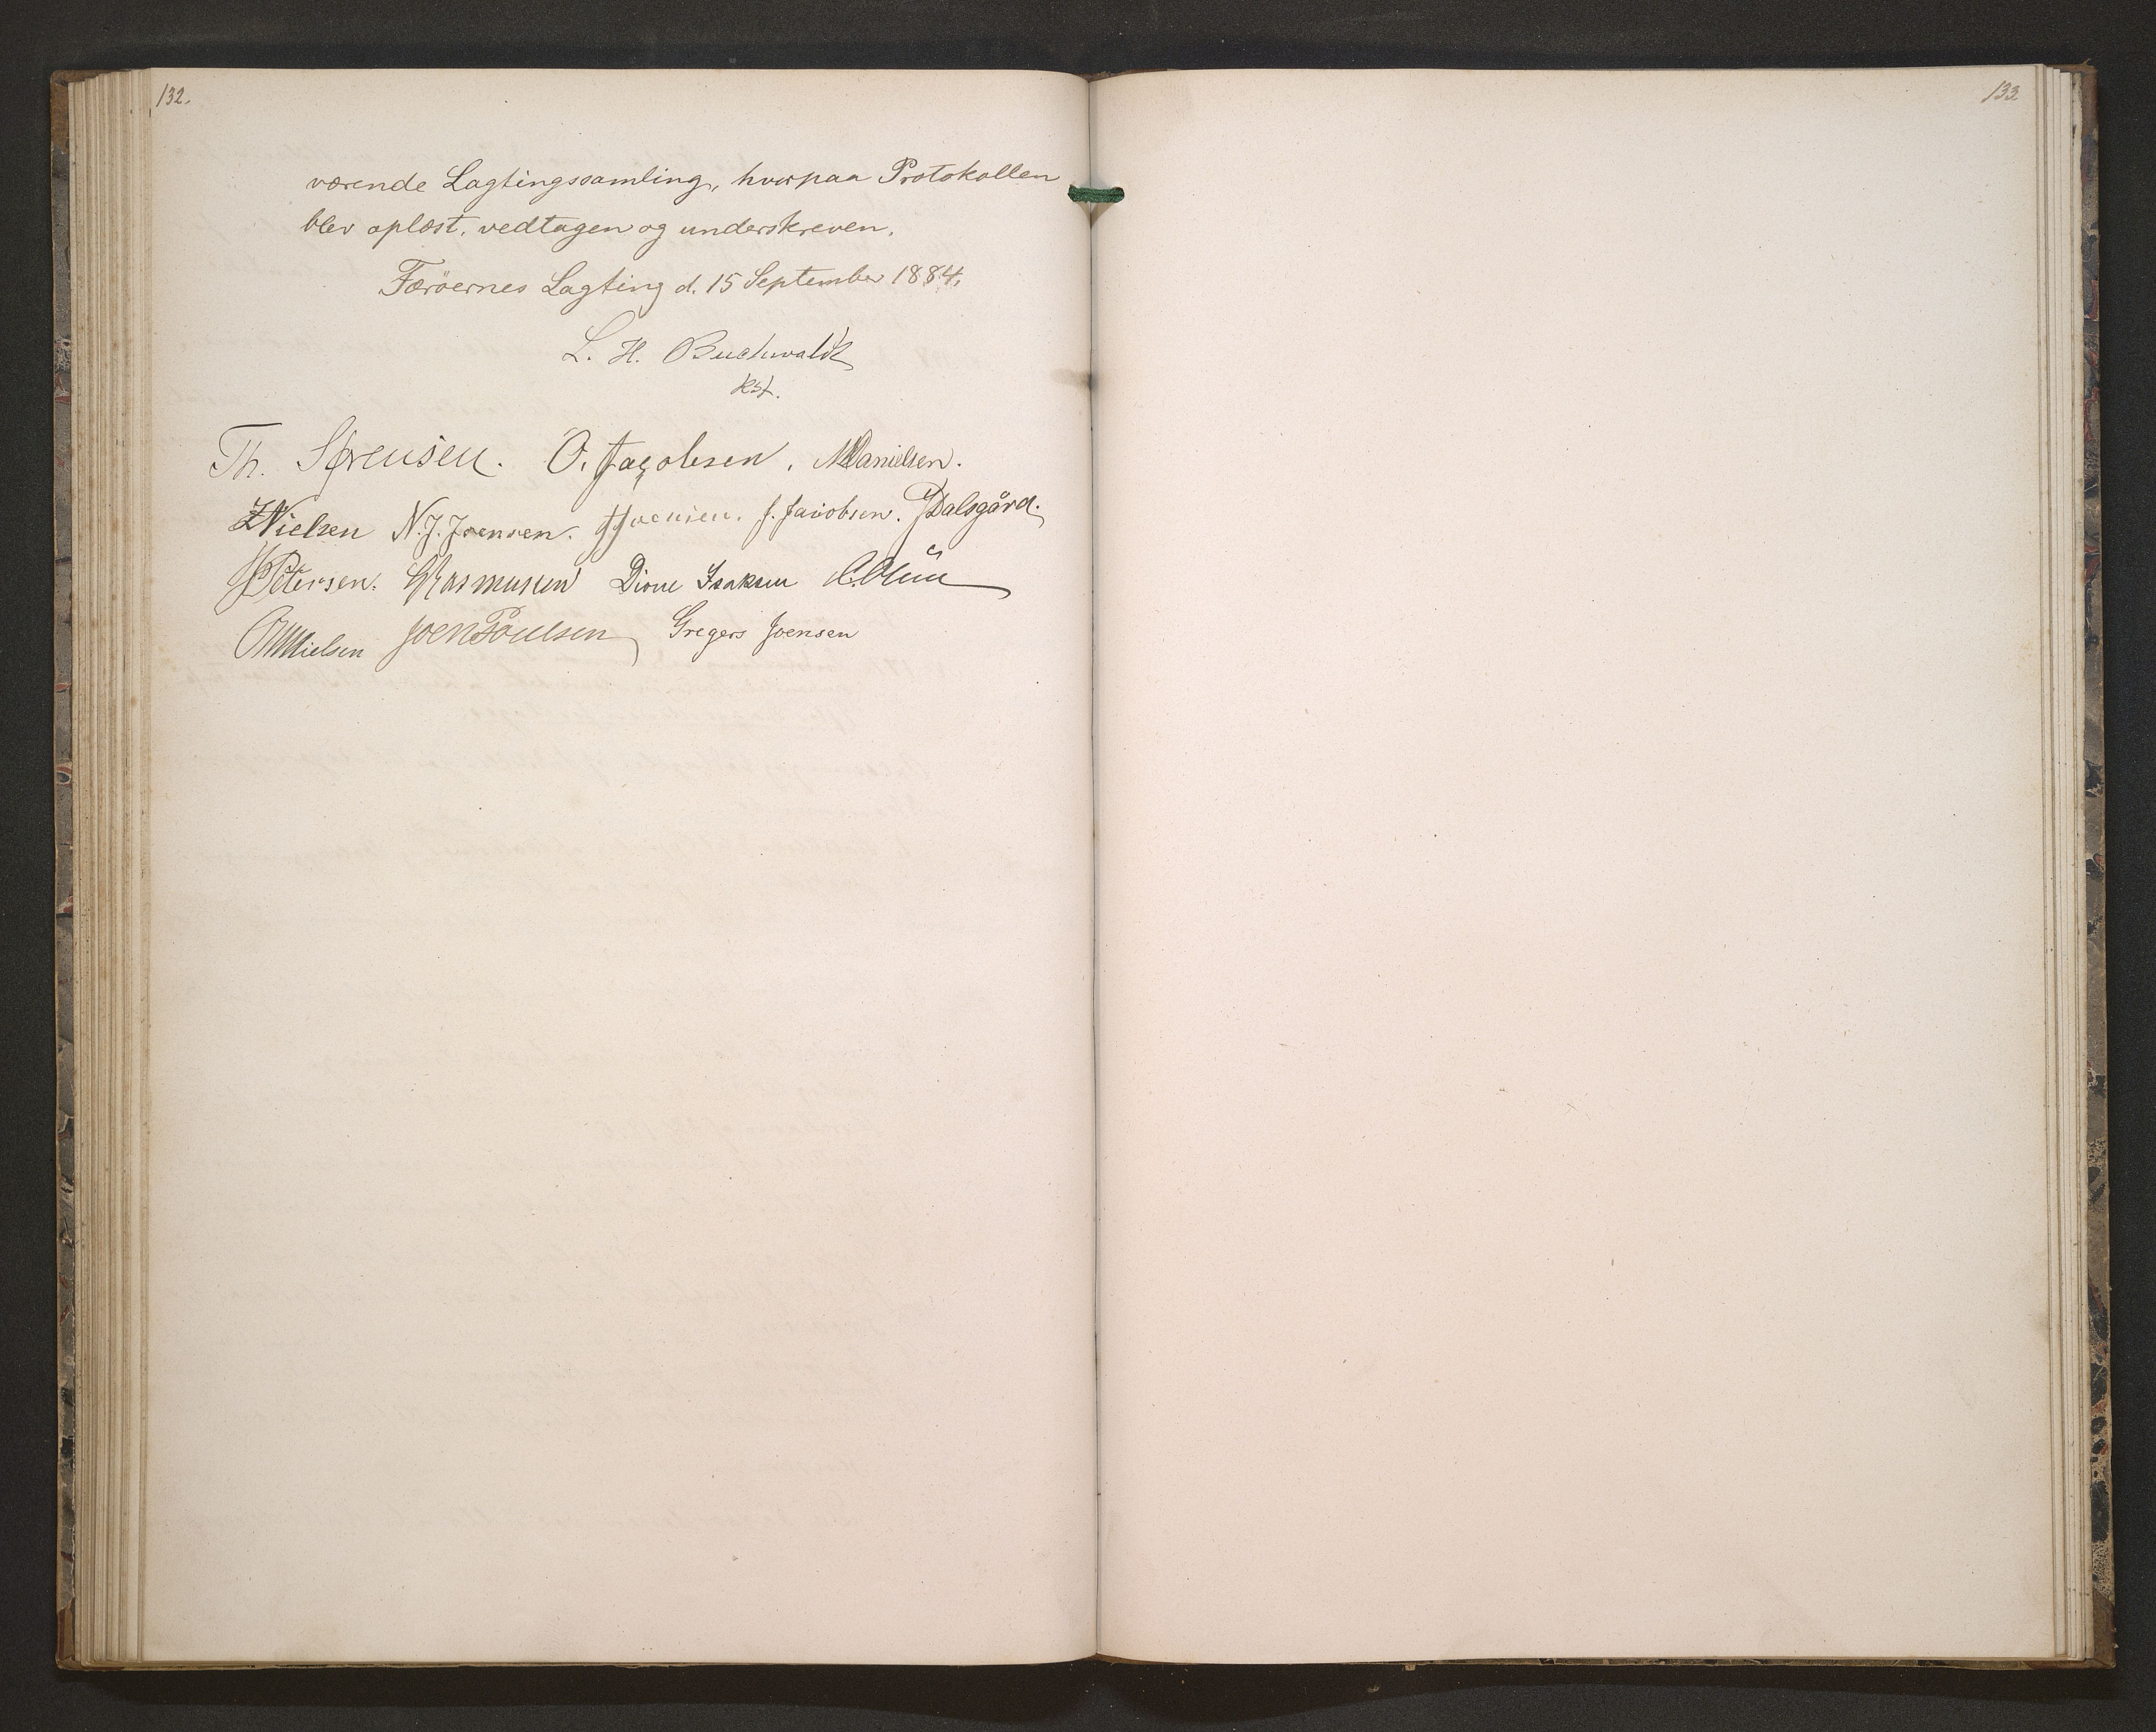 132.
værende Lagtingssamling, hvorpaa Protokollen
blev oplæst, vedtagen og underskreven.
Færöernes Lagting d. 15 September 1884.
L. H. Buchwaldt
kst.
Th. Sørensen. O. Jacobsen. MDanielsen.
ZNielsen N. J. Joensen. JJoensen. J. Jacobsen. JDalsgård.
Petersen. Rasmusen Dione Isaksen
Nielsen Joen Poulsen Gregers Joensen
133.